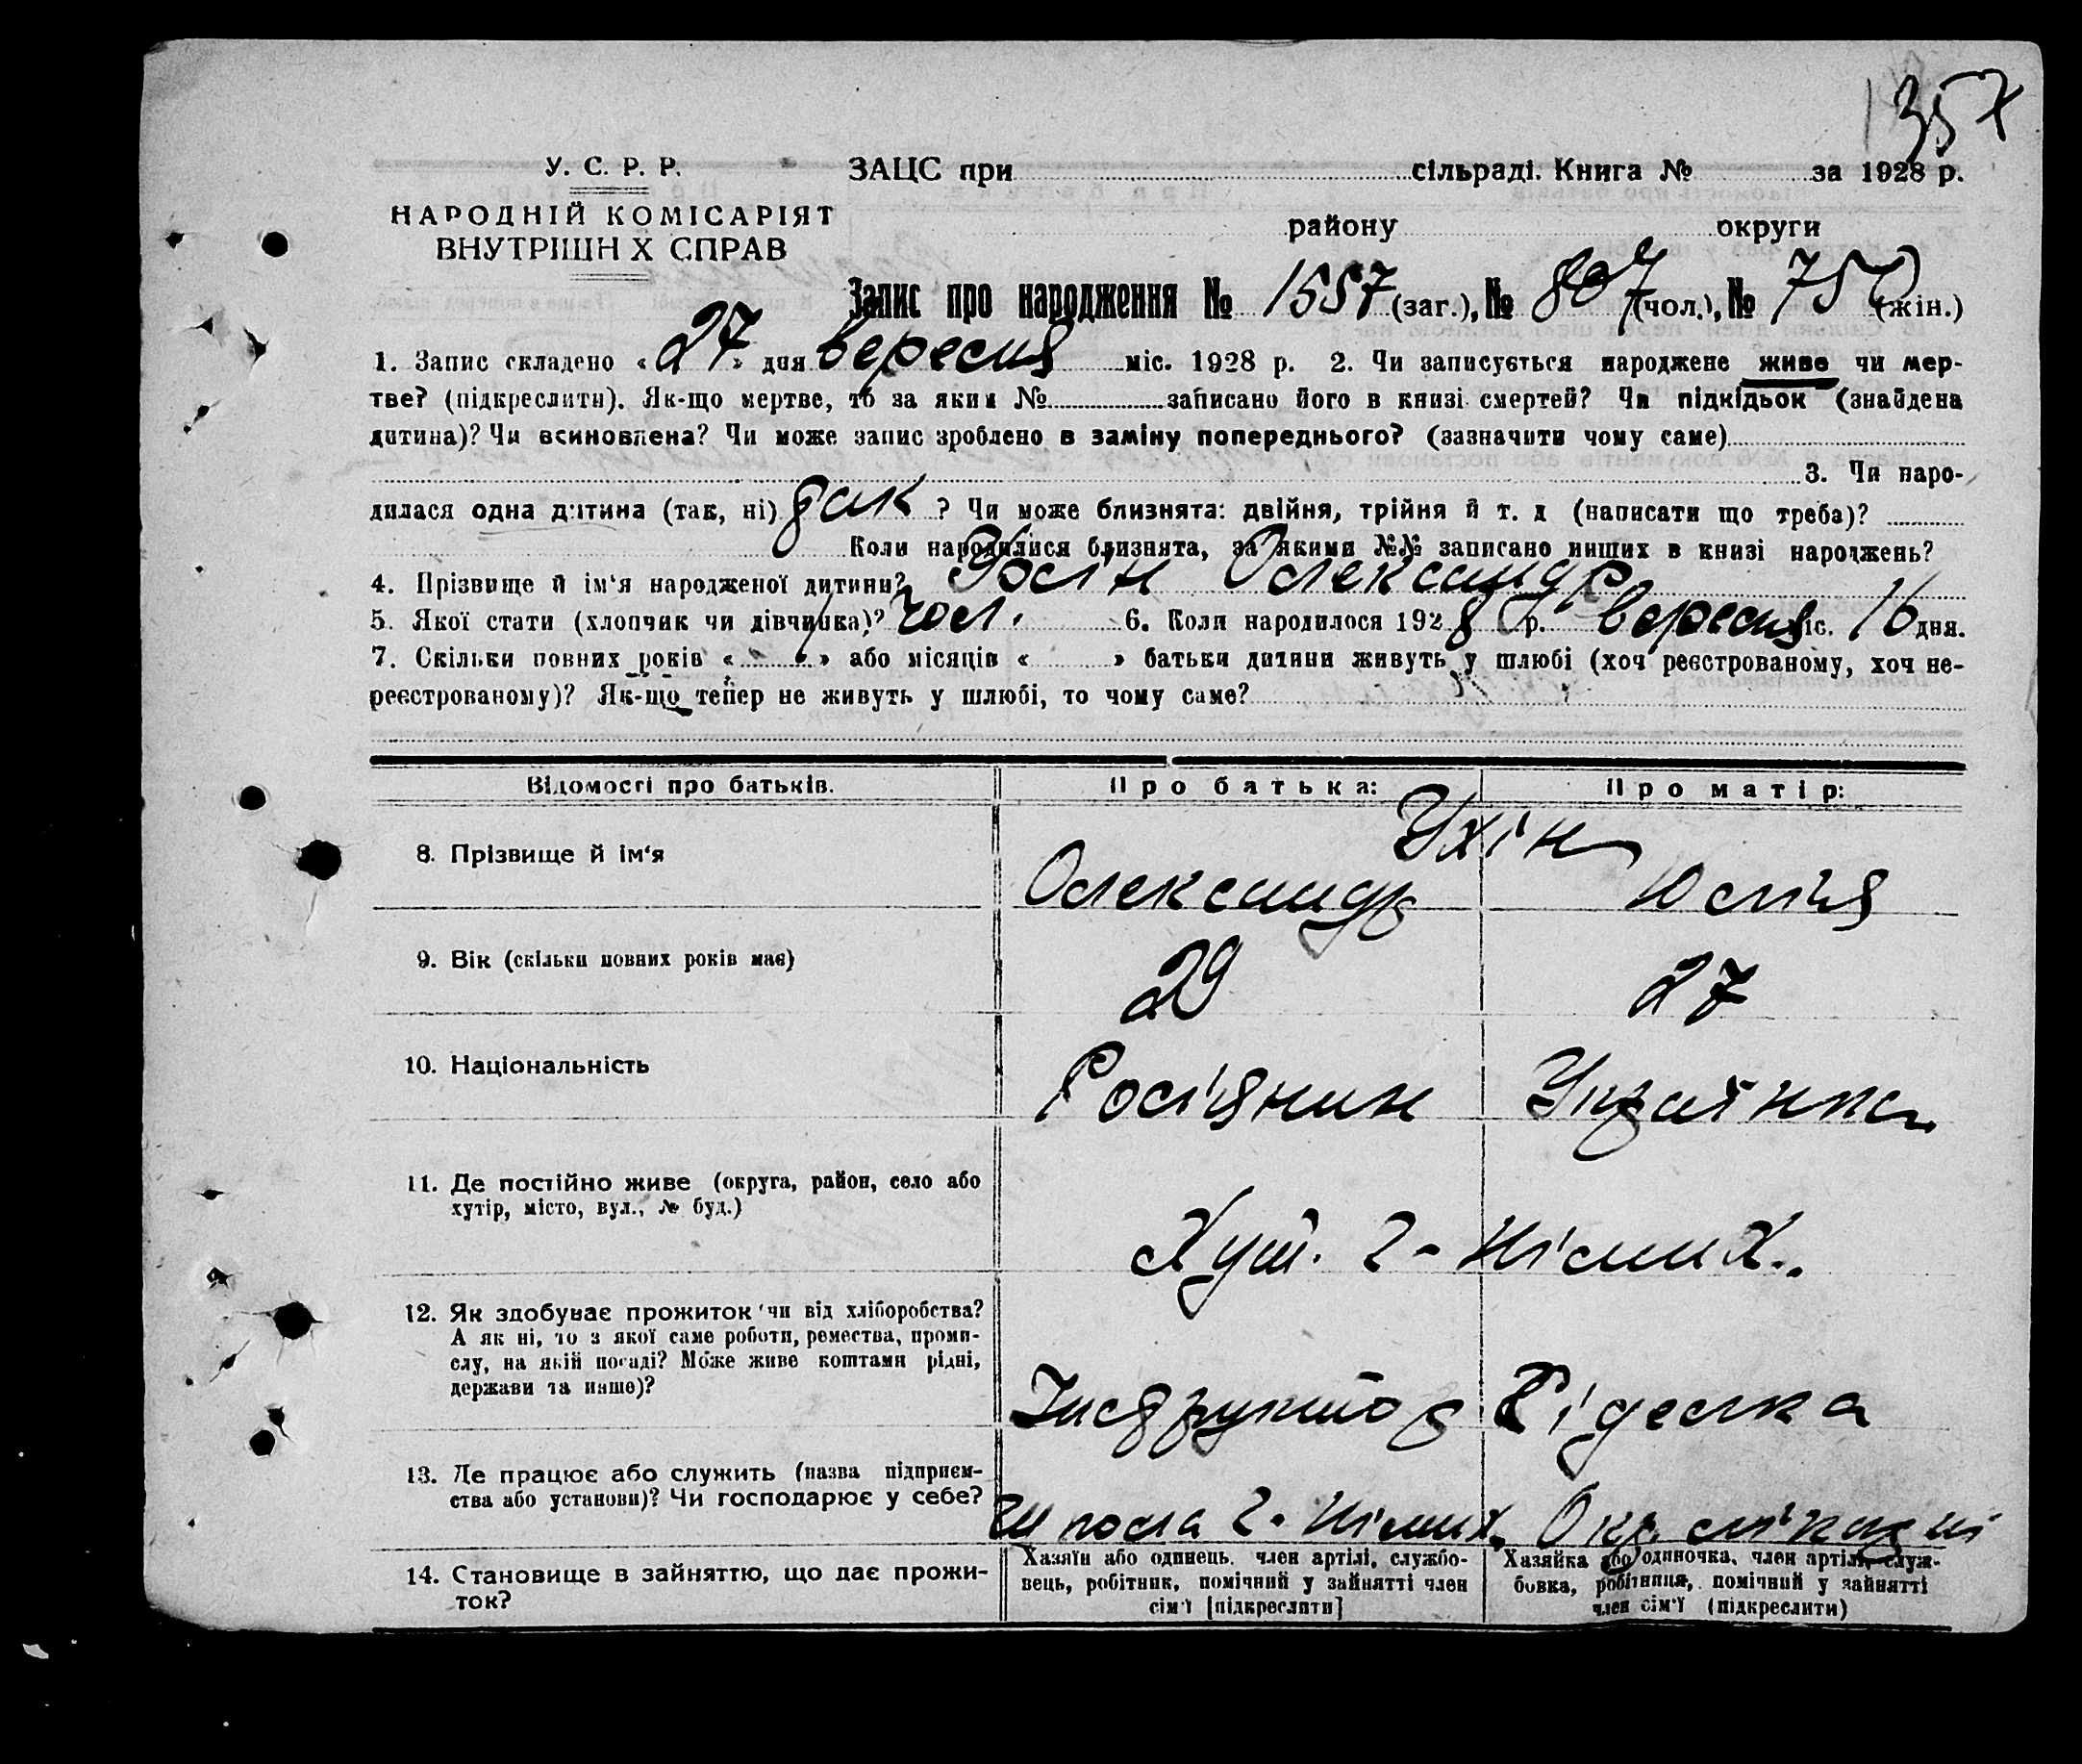 357
У. С. Р. Р.
ЗАЦС при сільраді. Книга № за 1928 р.
НАРОДНІЙ КОМІСАРІЯТ
ВНУТРІШН Х СПРАВ
району округи
Запис про народження № 1557 (заг.), № 807 (чол.), № 750 (жін.)
1. Запис складено « 27 » дня вересня міс. 1928 р. 2. Чи записується народжене живе чи мер-
тве? (підкреслити). Як-що мертве, то за яким № записано його в книзі смертей? Чи підкідьок (знайдена
дитина)? Чи всиновлена? Чи може запис зроблено в заміну попереднього? (зазначити чому саме)
3. Чи наро-
дилася одна дитина (так, ні) так ? Чи може близнята: двійня, трійня й т. д (написати що треба)?
Коли народилися близнята, за якими №№ записано инших в книзі народжень?
4. Прізвище й ім‘я народженої дитини? Олександр
5. Якої стати (хлопчик чи дівчинка)? чол. 6. Коли народилося 1928 р. вересня міс. 16 дня.
7. Скільки повних років « » або місяців « » батьки дитини живуть у шлюбі (хоч реєстрованому, хоч не-
реєстрованому)? Як-що тепер не живуть у шлюбі, то чому саме?
Відомості про батьків. Про батька: Про матір:
Ухін
8. Прізвище й ім‘я Олександр Юлія
9. Вік (скільки повних років має) 29 27
10. Національність Росіянин Українка
11. Де постійно живе (округа, район, село або
хутір, місто, вул., № буд.)
Хут. 2- Німих.
12. Як здобуває прожиток чи від хліборобства?
А як ні, то з якої саме роботи, ремества, проми-
слу, на якій посаді? Може живе коштами рідні,
держави та инше)?
Інструктор
13. Де працює або служить (назва підприєм-
ства або установи)? Чи господарює у себе?
Школа 2- Німих. Окр. лікарні
14. Становище в зайняттю, що дає прожи-
ток?
Хазяїн або одинець, член артілі, службо-
вець, робітник, помічний у зайнятті член
сім‘ї [підкреслити]
Хазяйка або одиночка, член артілі, служ-
бовка, робітниця, помічний у зайнятті
член сім‘ї (підкреслити)